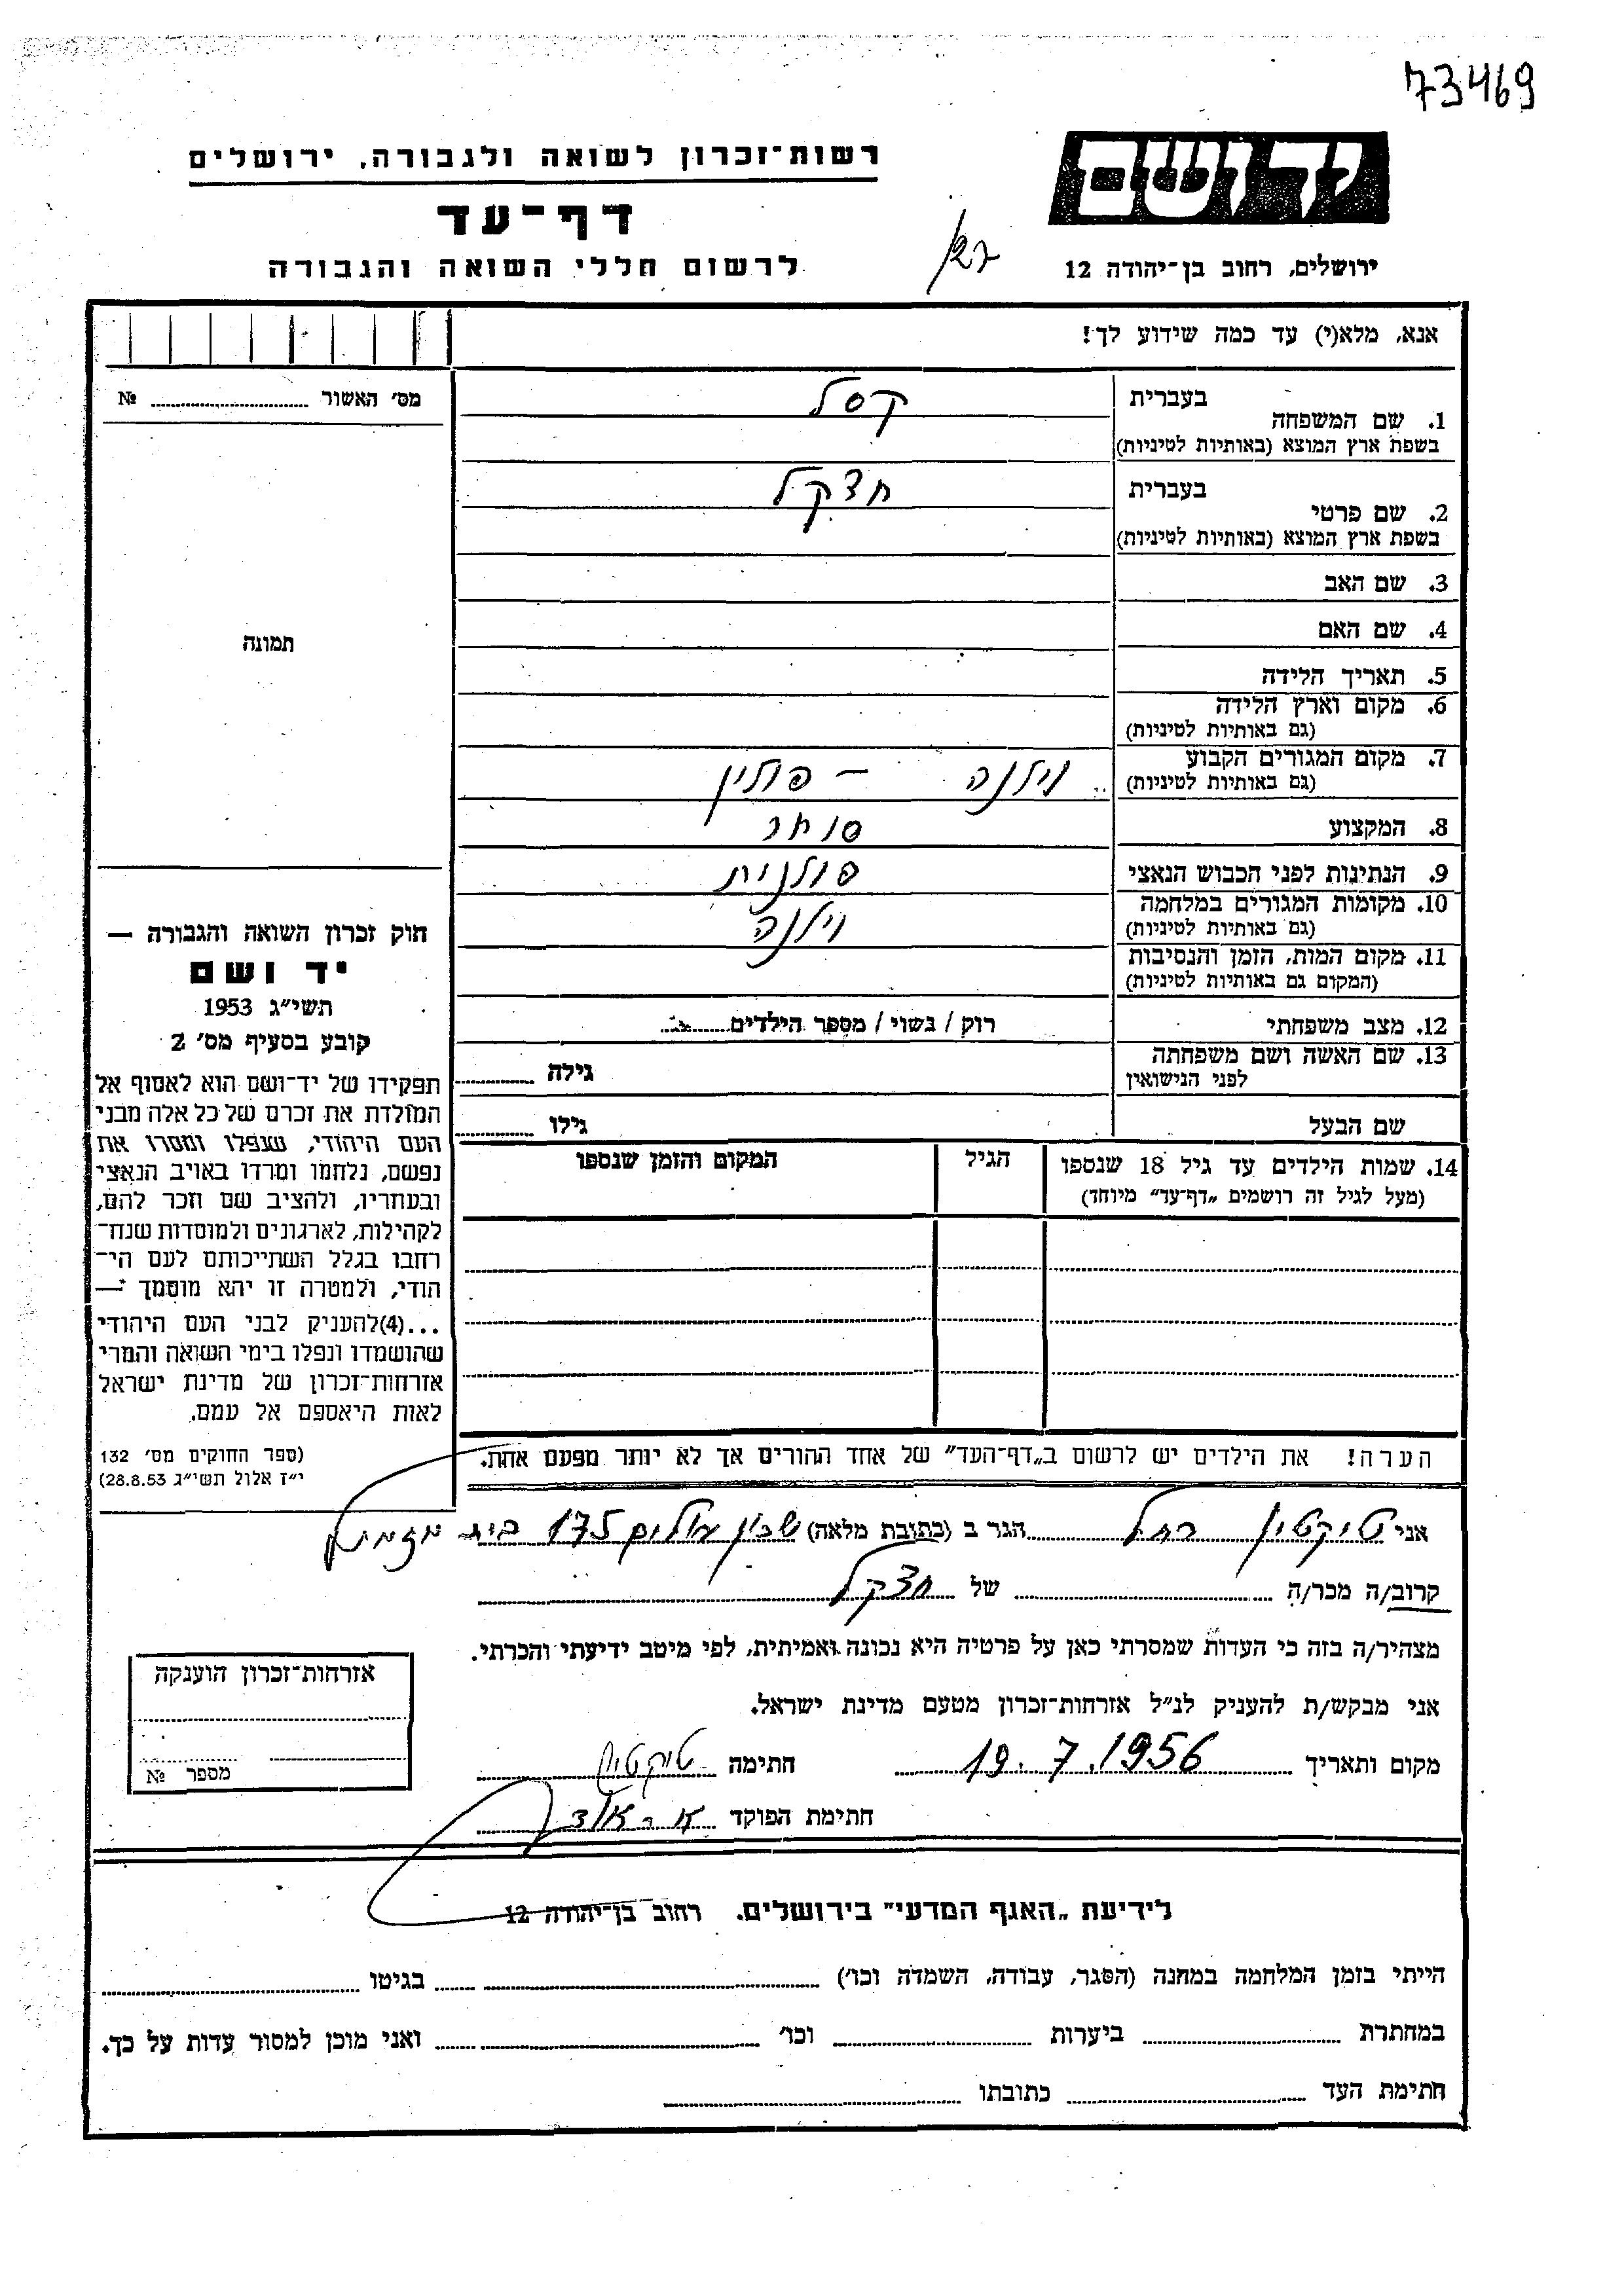 73469
רשות־זכרון לשואה ולגבורה, ירושלים
יד ושם
דף־עד
לרשום חללי השואה והגבורה
ירושלים, רחוב בן־יהודה 12
אנא, מלא(י) עד כמה שידוע לך!
מס׳ האשור ........ №
תמונה
1. שם המשפחה בעברית קסל
בשפת ארץ המוצא (באותיות לטיניות)
2. שם פרטי בעברית חצקל
בשפת ארץ המוצא (באותיות לטיניות)
3. שם האב
4. שם האם
5. תאריך הלידה
6. מקום וארץ הלידה
(גם באותיות לטיניות)
7. מקום המגורים הקבוע וילנה – פולין
(גם באותיות לטיניות)
8. המקצוע סוחר
9. הנתינות לפני הכבוש הנאצי פולנית
10. מקומות המגורים במלחמה וילנה
(גם באותיות לטיניות)
11. מקום המות, הזמן והנסיבות
(המקום גם באותיות לטיניות)
12. מצב משפחתי רוק / נשוי / מספר הילדים
13. שם האשה ושם משפחתה גילה
לפני הנישואין
שם הבעל גילו
14. שמות הילדים עד גיל 18 שנספו הגיל המקום והזמן שנספו
(מעל לגיל זה רושמים „דף־עד” מיוחד)
הערה! את הילדים יש לרשום ב„דף־העד” של אחד ההורים אך לא יותר מפעם אחת.
חוק זכרון השואה והגבורה —
יד ושם
תשי״ג 1953
קובע בסעיף מס׳ 2
תפקידו של יד־ושם הוא לאסוף אל
המולדת את זכרם של כל אלה מבני
העם היהודי, שנפלו ומסרו את
נפשם, נלחמו ומרדו באויב הנאצי
ובעוזריו, ולהציב שם וזכר להם,
לקהילות, לארגונים ולמוסדות שנח־
רחבו בגלל השתייכותם לעם הי־
הודי, ולמטרה זו יהא מוסמך —
...(4)להעניק לבני העם היהודי
שהושמדו ונפלו בימי השואה והמרי
אזרחות־זכרון של מדינת ישראל
לאות היאספם אל עמם.
(ספר החוקים מס׳ 132
י״ז אלול תשי״ג 28.8.53)
אני טיקטין רחל הגר ב (כתובת מלאה) שכון עולים 175 בית מזמיל
קרוב/ה מכר/ה של חצקל
מצהיר/ה בזה כי העדות שמסרתי כאן על פרטיה היא נכונה ואמיתית, לפי מיטב ידיעתי והכרתי.
אני מבקש/ת להעניק לנ״ל אזרחות־זכרון מטעם מדינת ישראל.
מקום ותאריך 19.7.1956 חתימה טיקטין
חתימת הפוקד
אזרחות־זכרון הוענקה
מספר №
לידיעת „האגף המדעי” בירושלים, רחוב בן־יהודה 12
הייתי בזמן המלחמה במחנה (הסגר, עבודה, השמדה וכו׳) בגיטו
במחתרת ביערות וכו׳ ואני מוכן למסור עדות על כך.
חתימת העד כתובתו